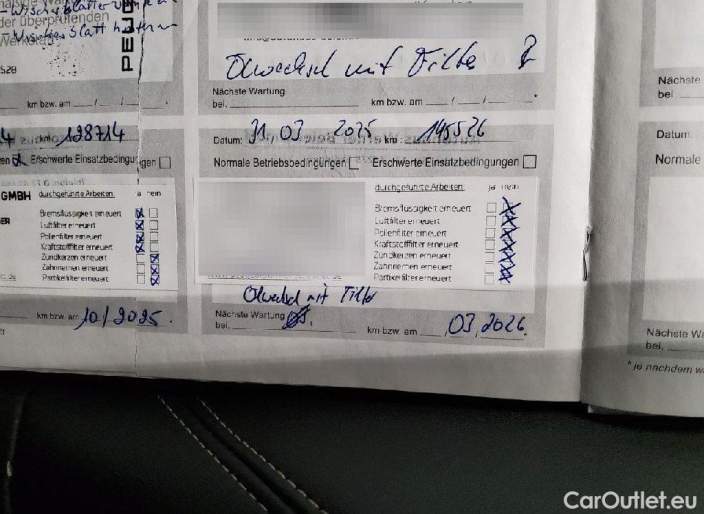 der überprüfenden
PEUG
Ölwechsel mit Filter
Nächste Wartung
bei
km bzw. am
/ / /
km bzw. am
/ / /
Nächste
bei
128714
Datum: 31 03 2025 km 145526
Datum
Erschwerte Einsatzbedingungen
Normale Betriebsbedingungen
Erschwerte Einsatzbedingungen
Normale
GMBH
durchgeführte Arbeiten:
ja nein
Bremsflüssigkeit erneuert
Luftfilter erneuert
Pollenfilter erneuert
Kraftstofffilter erneuert
Zündkerzen erneuert
Zahnriemen erneuert
Partikelfilter erneuert
durchgeführte Arbeiten:
ja nein
Bremsflüssigkeit erneuert
Luftfilter erneuert
Pollenfilter erneuert
Kraftstofffilter erneuert
Zündkerzen erneuert
Zahnriemen erneuert
Partikelfilter erneuert
Ölwechsel mit Filter
km bzw. am 10/2025.
Nächste Wartung
bei
km bzw. am 03.2026.
Nächste Wa
bei
* je nachdem w
CarOutlet.eu